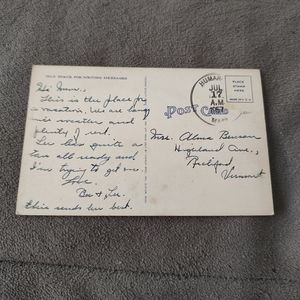 THIS SPACE FOR WRITING MESSAGES
Hi Mom,
This is the place for
a vacation. We are having
nice weather and
plenty of rest.
Lee has quite a
tan all ready and
I'm trying to get one.
Love
Bea & Lee.
Elsie sends her best.
POST CARD
JUL
17
A.M
1957
PLACE
STAMP
HERE
Mrs. Alma Benson
Highland Ave.,
Richford,
Vermont